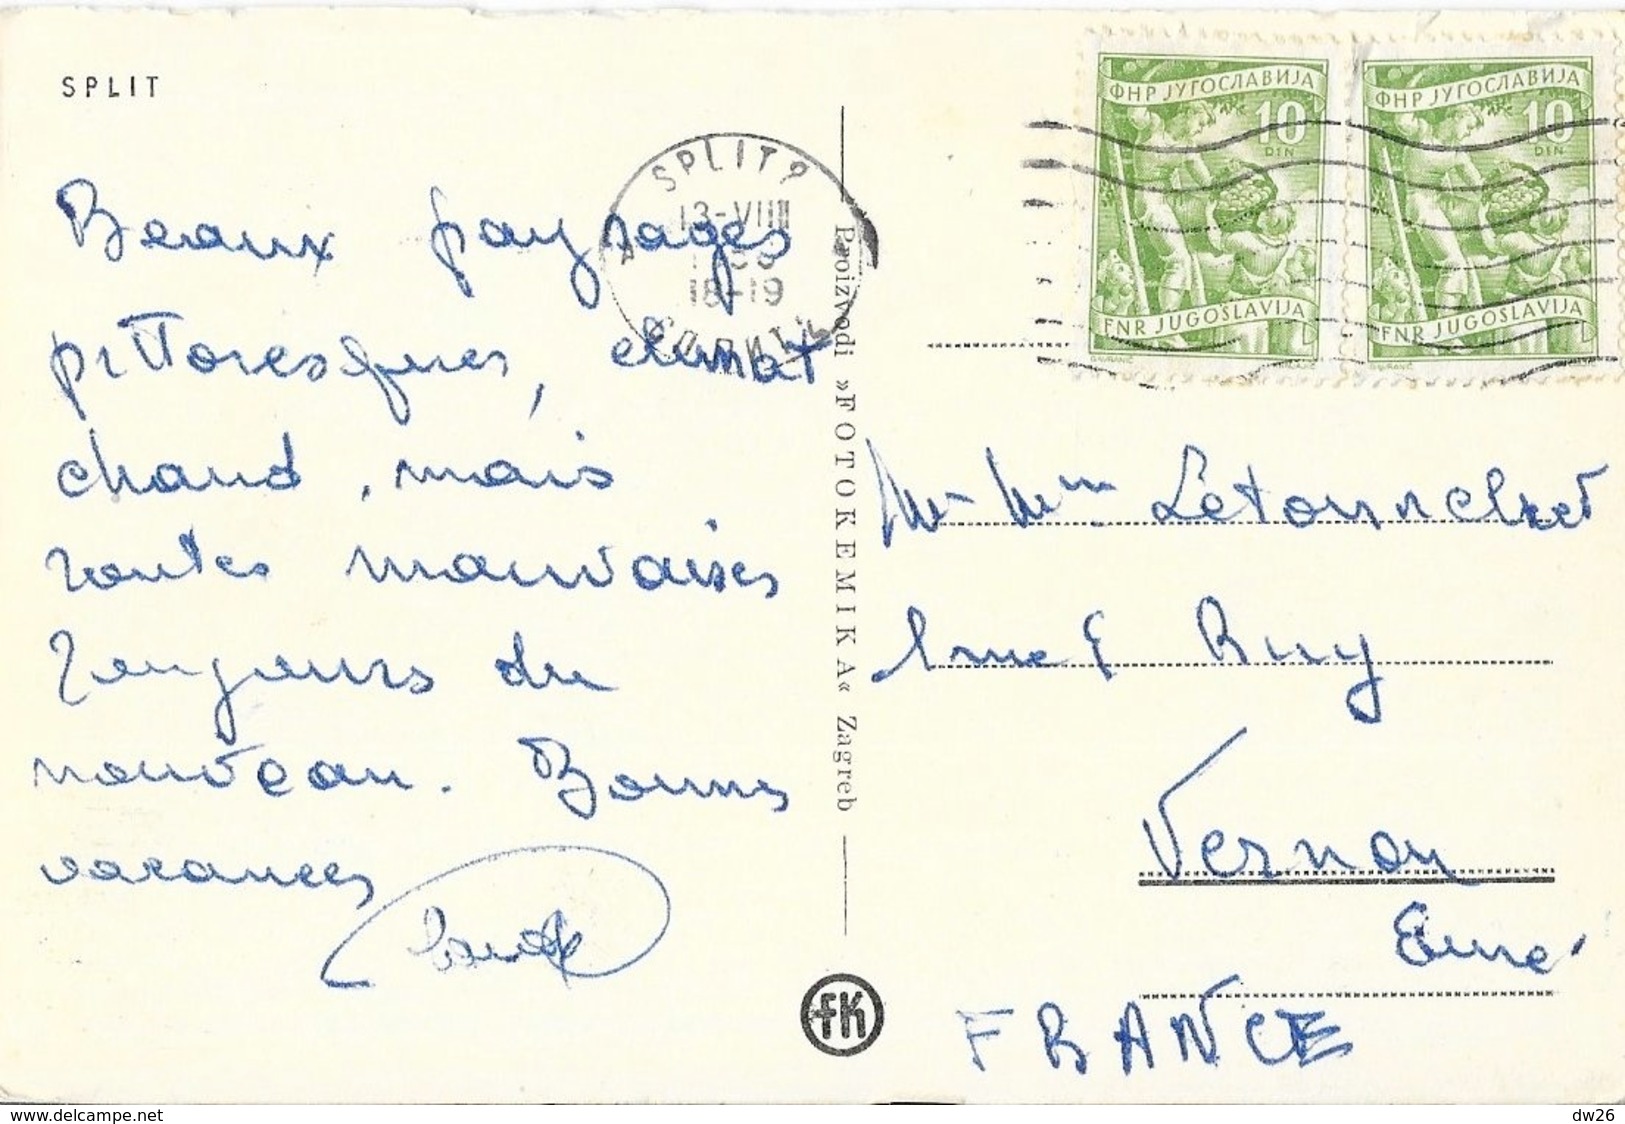 SPLIT
Beaux paysages
pittoresques, climat
chaud, mais
routes mauvaises
Toujours du
nouveau. Bonnes
vacances
SPLIT 2
13-VIII
18-19
СПЛИТ
Proizvodi »FOTOKEMIKA« Zagreb
fK
ФНР ЈУГОСЛАВИЈА
10
DIN
FNR JUGOSLAVIJA
ФНР ЈУГОСЛАВИЈА
10
DIN
FNR JUGOSLAVIJA
Mr Mme Letourn
Ruy
Vernon
Eure
FRANCE
www.delcampe.net
dw26